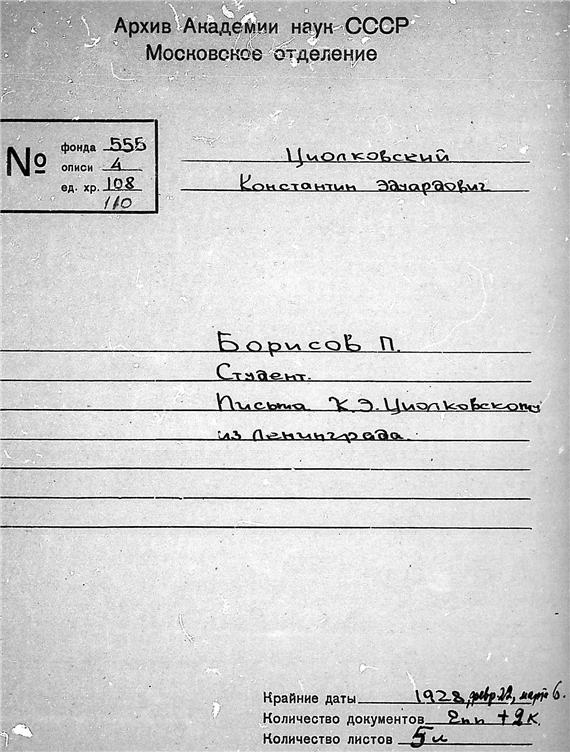 Архив Академии наук СССР
Московское отделение
№
фонда 555
описи 4
ед. хр. 108
110
Циолковский
Константин Эдуардович
Борисов П.
Студент.
Письма К.Э.Циолковскому
из Ленинграда.
Крайние даты 1928, февр. 22, марта 6.
Количество документов 2пп + 2к.
Количество листов 5л